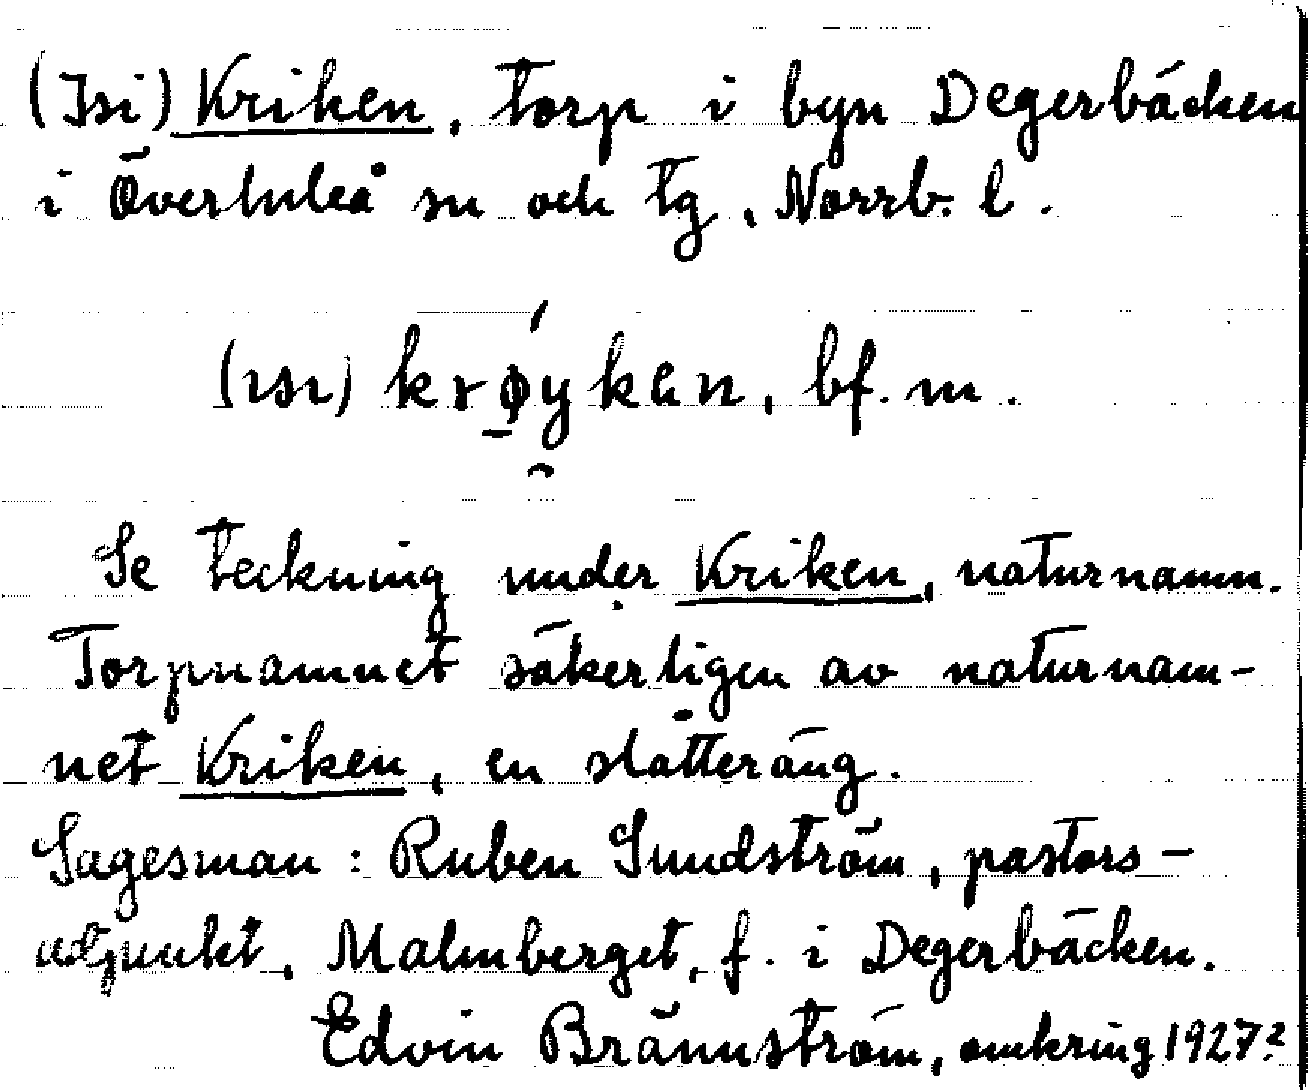 (Isi) Kriken, torp i byn Degerbäcken
i Överluleå sn och tg, Norrb. l.
(ısı) krøykən, bf. m.
Se teckning under Kriken, naturnamn.
Torpnamnet säkerligen av naturnam-
net Kriken, en slåtteräng.
Sagesman: Ruben Sundström, pastors-
adjunkt, Malmberget, f. i Degerbäcken.
Edvin Brännström, omkring 1927?